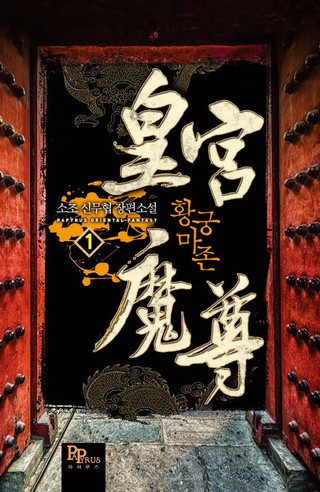 皇宮
魔尊
황궁
마존
소조 신무협 장편소설
PAPYRUS ORIENTAL FANTASY
1
PAPYRUS
파피루스